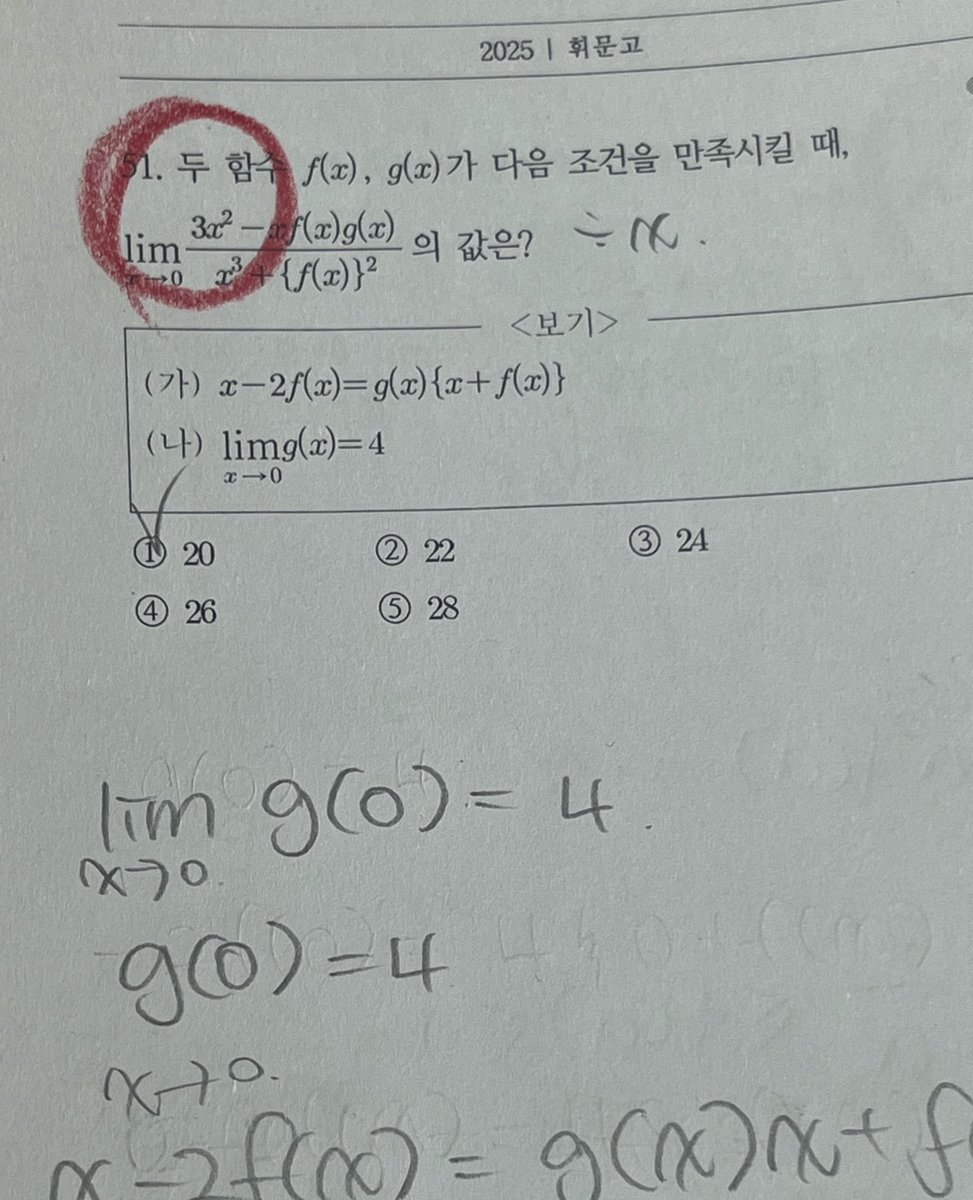 2025 | 휘문고
51. 두 함수 f(x), g(x)가 다음 조건을 만족시킬 때,
lim x→0 (3x² − xf(x)g(x))/(x³ + {f(x)}²) 의 값은? ÷x.
<보기>
(가) x−2f(x)=g(x){x+f(x)}
(나) lim x→0 g(x)=4
① 20 ② 22 ③ 24
④ 26 ⑤ 28
lim x→0. g(0) = 4.
g(0) = 4
x→0.
x−2f(x) = g(x)x + f